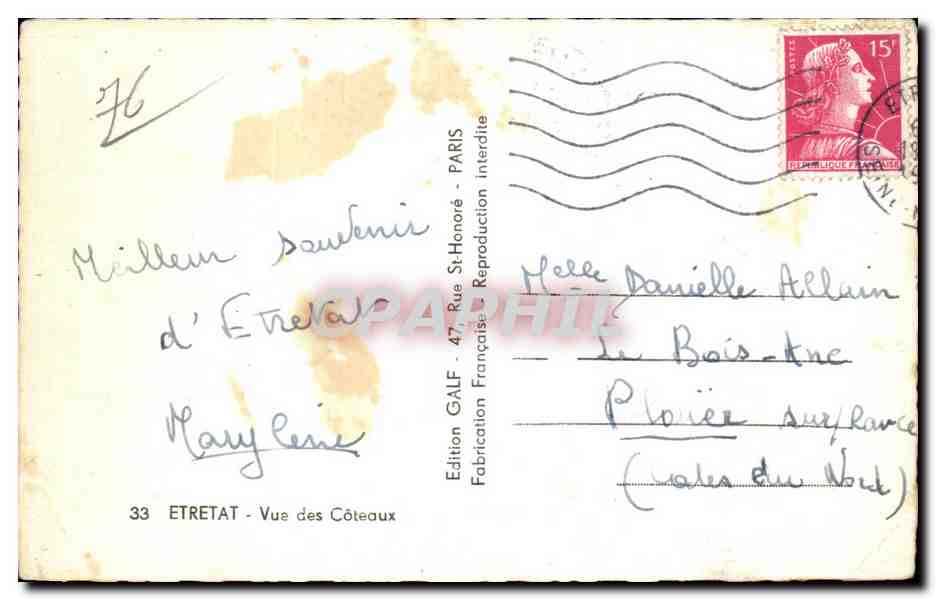 76
Meilleur souvenir
d'Etretat
Marylène
33 ETRETAT - Vue des Côteaux
Edition GALF - 47, Rue St-Honoré - PARIS
Fabrication Française - Reproduction interdite
CPAPHIL
POSTES
15F
REPUBLIQUE FRANÇAISE
Melle Danielle Allain
Le Bois-Ane
Plouër sur/Rance
(Cotes du Nord)